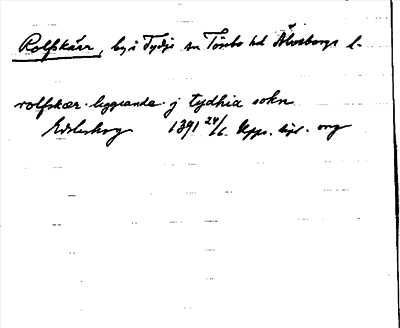 Rolfskärr, by i Tydje sn Tössbo hd Älvsborgs l.
rolfskær liggiande j tydhia sokn
1391 24/6. Upps. kyl. org